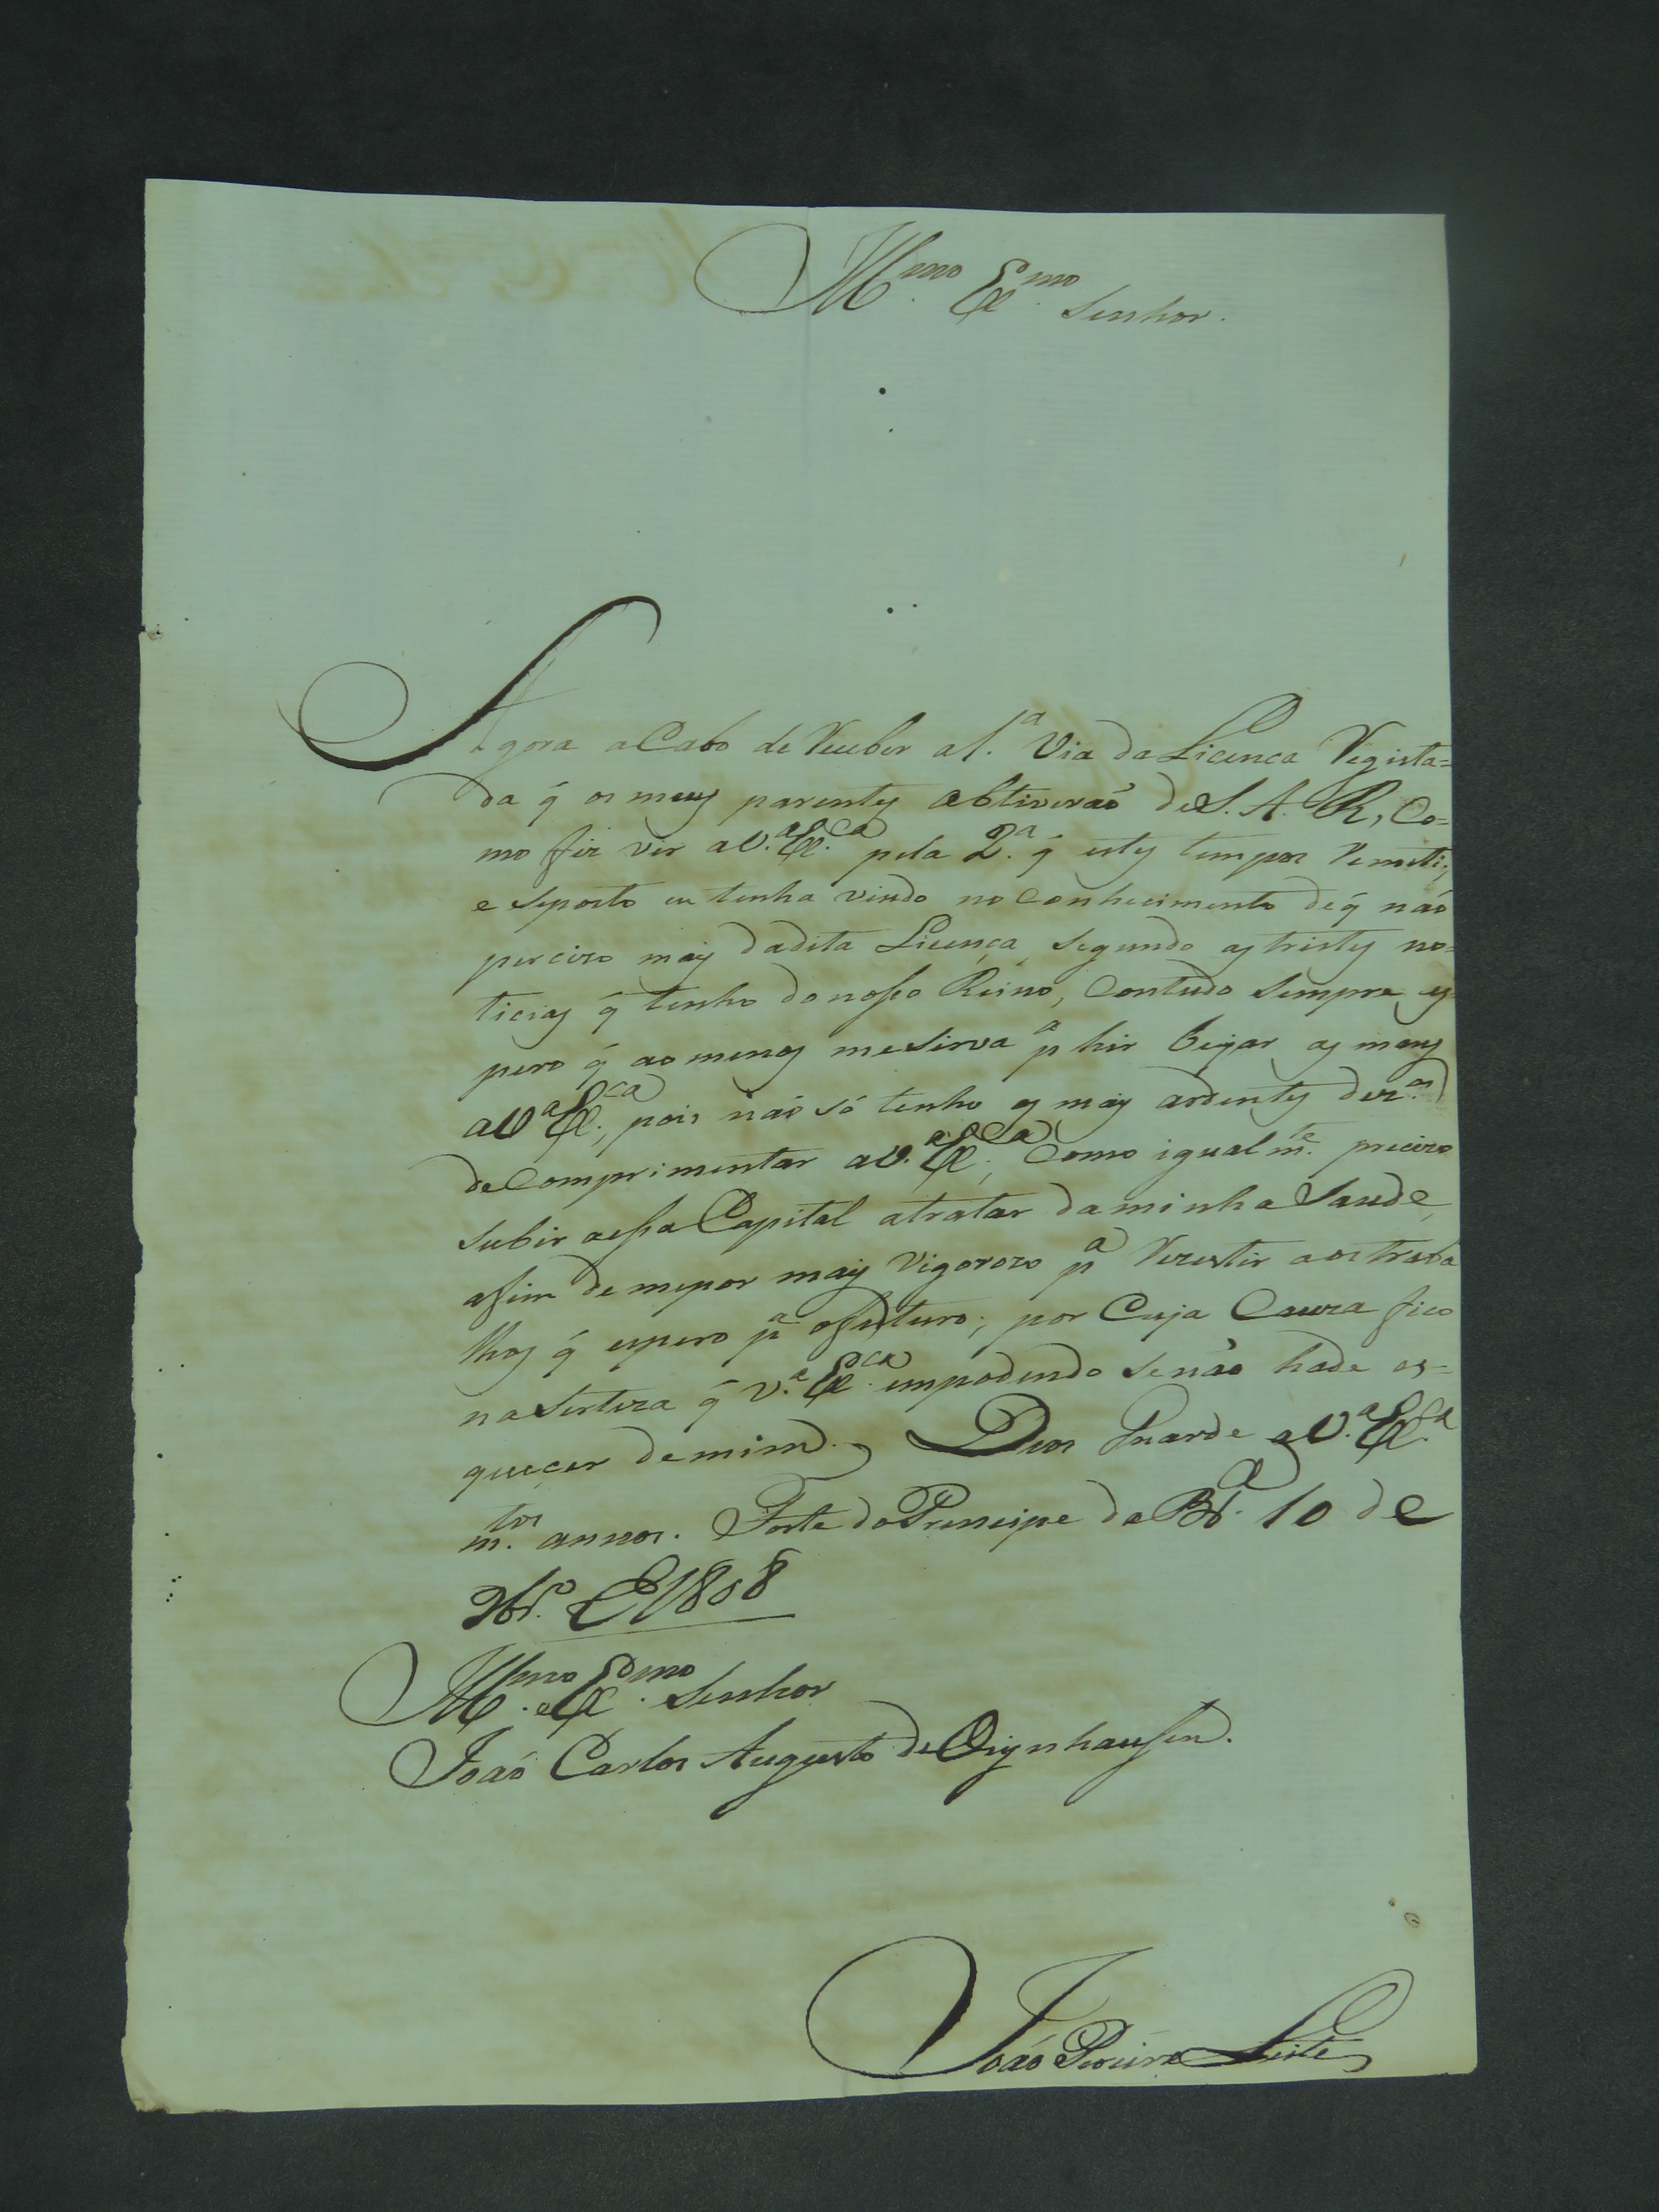 Ill.mo Ex.mo Senhor.
Agora acabo de Receber a 1.ª Via da Licença Regista=
da q̃ os meus parentes obtiveraõ de S. A. R, Co=
mo fiz ver a V.ª Ex.ca pela 2.ª q̃ estes tempos Remeti,
e seposto eu tenha vindo no conhecimento de q̃ naõ
percizo mais da dita Licença, segundo as tristes no=
ticias q̃ tenho do nosso Reino, Contudo sempre es
pero q̃ ao menos me sirva p.ª hir beijar as maos
a V.ª Ex.ca, pois naõ só tenho os mais ardentes dez.os
de Comprimentar a V.ª Ex.ca, Como igualm.te precizo
subir a essa Capital a tratar da minha Saude,
afim de me por mais Vigorozo p.ª Rezestir aos traba
lhos q̃ espero p.ª o futuro; por Cuja Cauza fico
na serteza q̃ V.ª Ex.ca empodendo se naõ hade es=
queçer de mim. Deos Guarde a V.ª Ex.ca
m.tos annos. Forte do Prencipe da Br.ª 10 de
9br.º de 1808
Ill.mo e Ex.mo Senhor
Joaõ Carlos Augusto de Oeynhausen.
Joaõ Pereira Leite